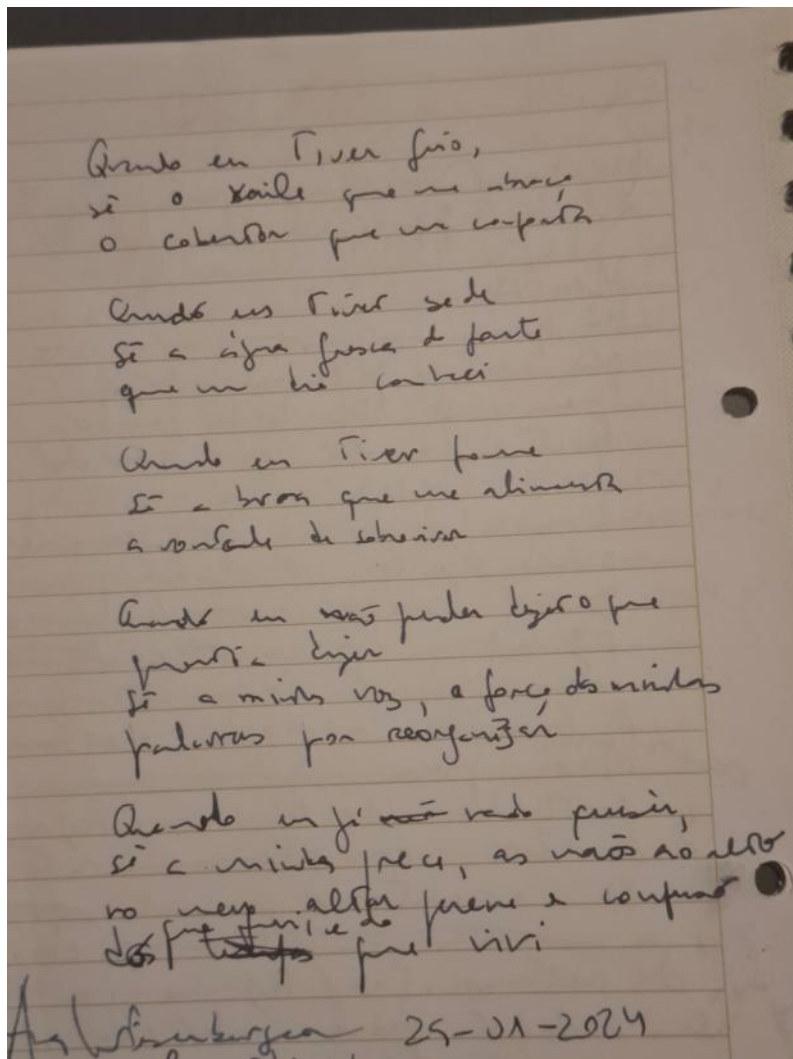 Quando eu Tiver frio,
sê o xaile que me abraça
o cobertor que me conforta
Quando eu Tiver sede
Sê a água fresca da fonte
que um dia conheci
Quando eu Tiver fome
Sê a broa que me alimenta
a vontade de sobreviver
Quando eu não puder dizer o que
queria dizer
Sê a minha voz, a força das minhas
palavras por reorganizar
Quando eu já nada puder,
sê a minha prece, as mãos ao alto
no meu altar perene e
que vivi
25-01-2024